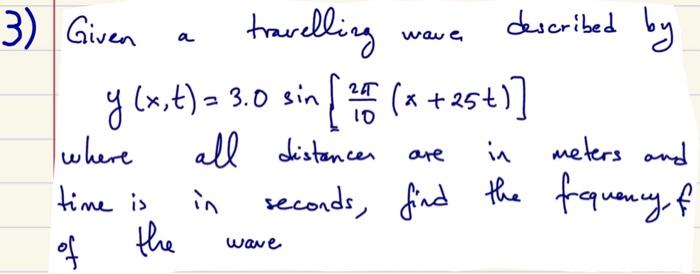 3) Given a travelling wave described by
y(x,t) = 3.0 sin[2π/10 (x + 25t)]
where all distances are in meters and
time is in seconds, find the frequency, f
of the wave